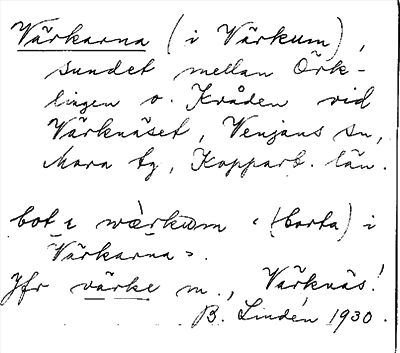 Värkarna (i Värkum),
sundet mellan Örk-
lingen o. Kråden vid
Värknäset, Venjans sn,
Mora tg, Kopparb. län.
bot ɩ wàrkum ‹(borta) i
Värkarna›.
Jfr värke m., Värknäs!
B. Lindén 1930.